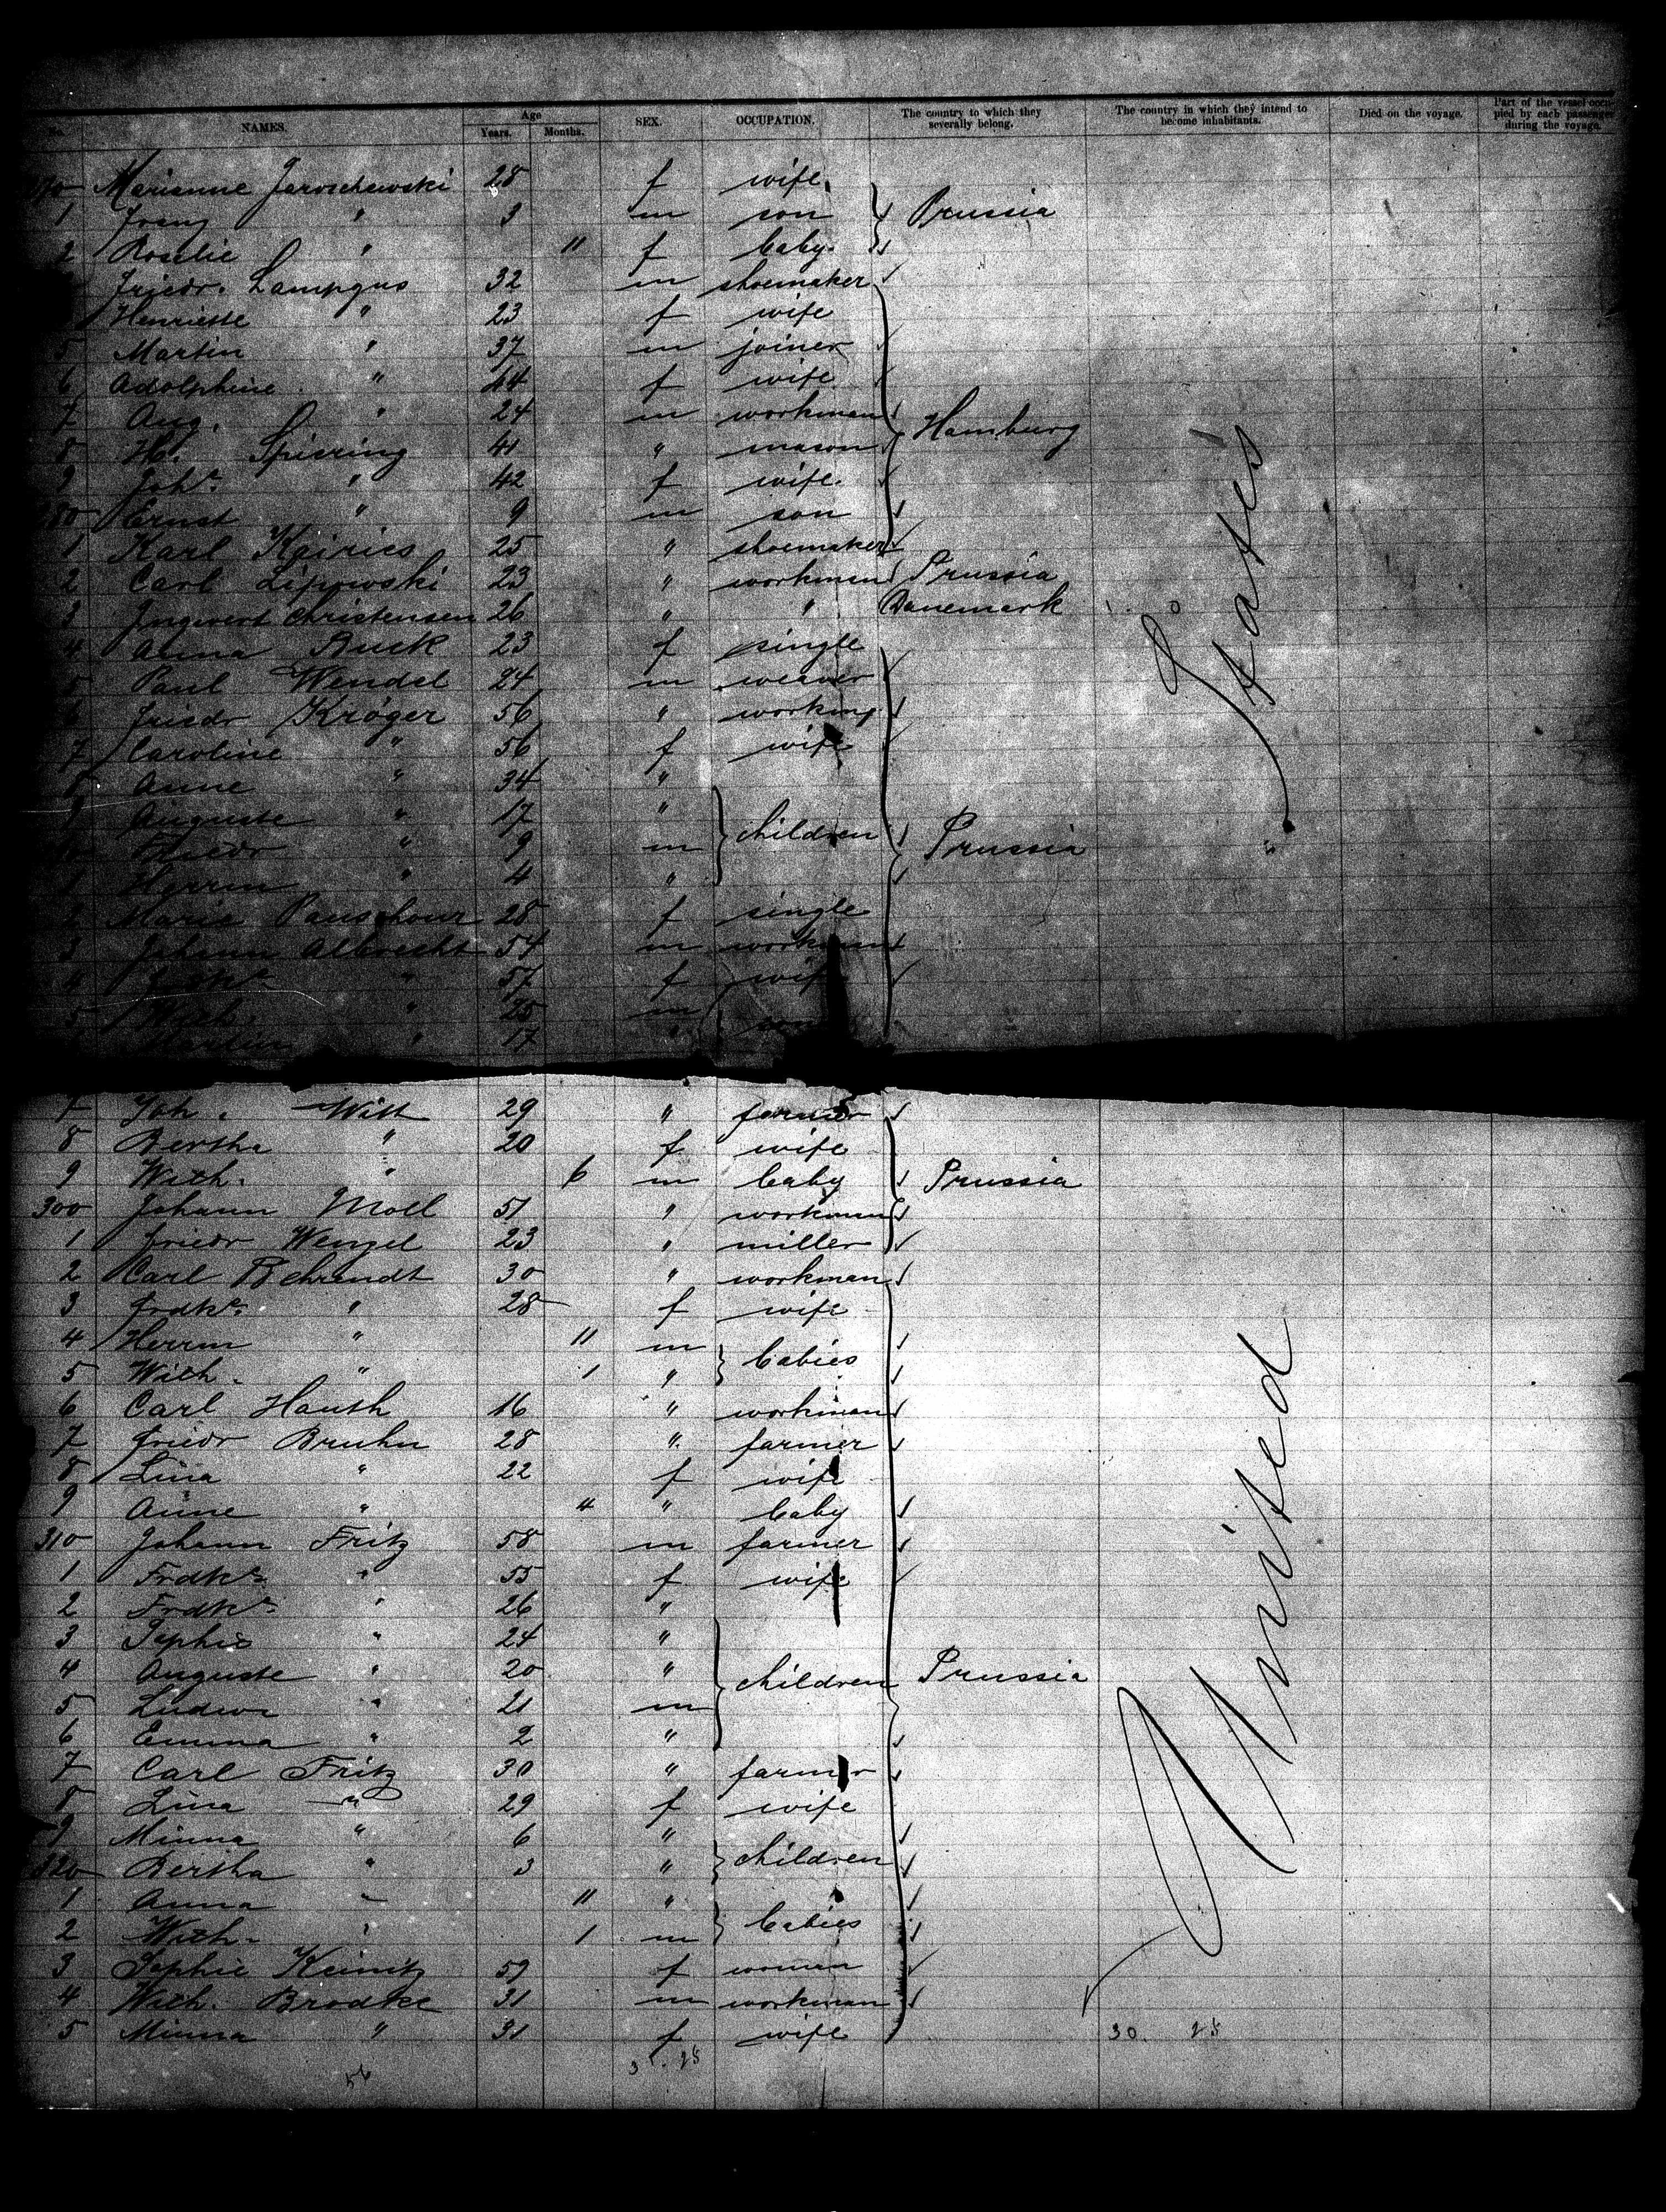 No. NAMES. Age Years. Months. SEX. OCCUPATION. The country to which they severally belong. The country in which they intend to become inhabitants. Died on the voyage. Part of the vessel occupied by each passenger during the voyage.
270 Marianne Jaroschewski 28 f wife
1 Franz " 3 m son Prussia
2 Rosalie " 11 f baby
Friedr. Lampgus 32 m shoemaker
Henriette " 23 f wife
5 Martin " 37 m joiner
6 Adolphine " 44 f wife
7 Aug. " 24 m workman Hamburg
8 Hr. Spirring 41 " mason
9 Johe " 42 f wife
280 Ernst " 9 m son
1 Karl Kairies 25 " shoemaker
2 Carl Lipowski 23 " workman Prussia
3 Ingwert Christensen 26 " " Danemark
4 Anna Buck 23 f single
5 Paul Wendel 24 m weaver
6 Friedr Kröger 56 " working
7 Caroline " 56 f wife
8 Anne " 34 "
9 Auguste " 17 " children
Friedr " 9 m Prussia
1 Herrm " 4 "
2 Marie 28 f single
3 Johann Albrecht 54 m workman
4 " 57 f wife
5 Wilh. " 25 m
Martin " 17 "
7 Joh. Witt 29 " farmer
8 Bertha " 20 f wife
9 Wilh. " 6 m baby Prussia
300 Johann Moll 51 " workman
1 Friedr Wenzel 23 " miller
2 Carl Behrendt 30 " workman
3 Frdke " 28 f wife
4 Herrm " 11 m babies
5 Wilh. " 1 "
6 Carl Hauth 16 " workman
7 Friedr Bruhn 28 " farmer
8 Lina " 22 f wife
9 Anne " 4 " baby
310 Johann Fritz 58 m farmer
1 Frdke " 55 f wife
2 Frdke " 26 "
3 Sophie " 24 "
4 Auguste " 20 " children Prussia
5 Ludw " 21 m
6 Emma " 2 "
7 Carl Fritz 30 " farmer
8 Lina " 29 f wife
9 Minna " 6 " children
320 Bertha " 3 "
1 Anna " 11 " babies
2 Wilh. " 1 m
3 Sophie Keinitz 59 f woman
4 Wilh. Brodke 31 m workman
5 Minna " 31 f wife
30. 28
United States